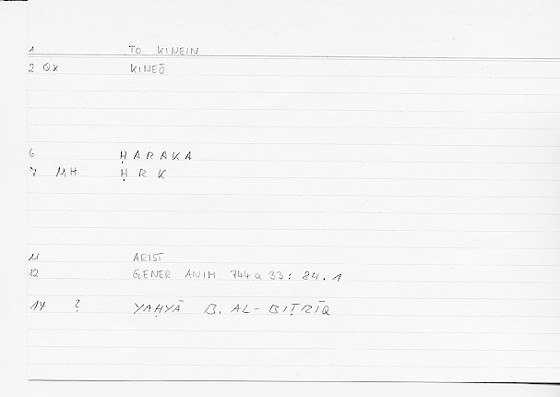 1 TO KINEIN
2 QX KINEŌ
6 ḤARAKA
7 MH ḤRK
11 ARIST
12 GENER ANIM 744 a 33 : 84.1
14 ? YAḤYĀ B. AL-BIṬRĪQ